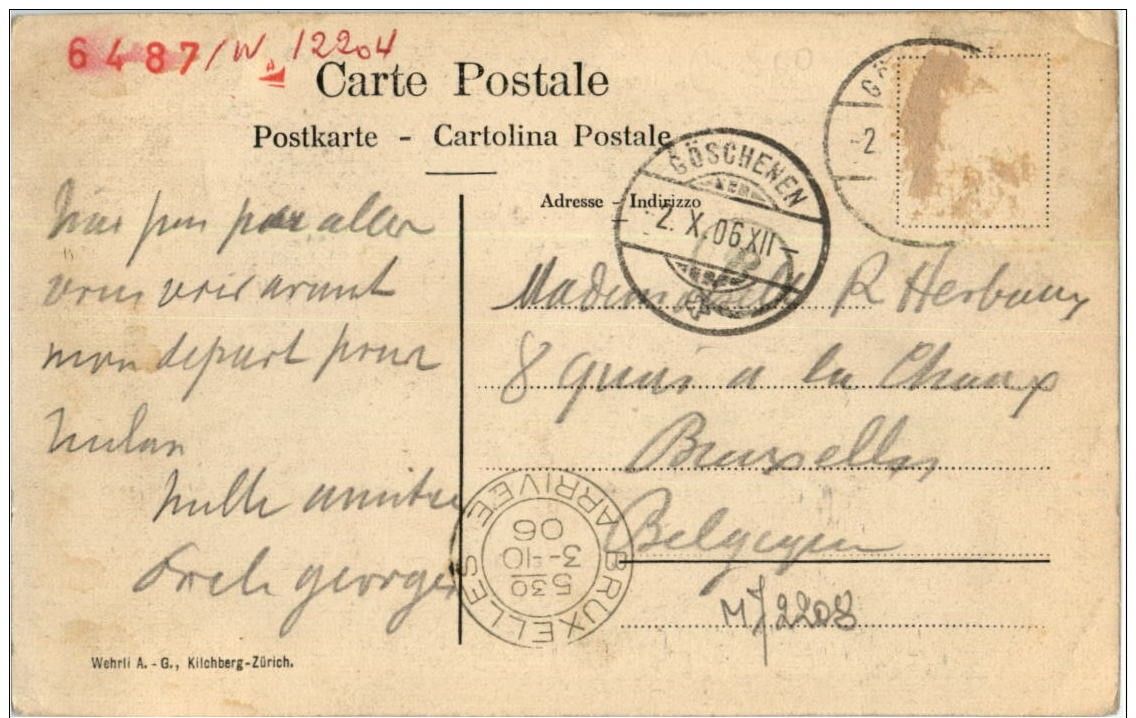 6487/W. 12204
Carte Postale
Postkarte - Cartolina Postale
Adresse - Indirizzo
GÖSCHENEN
-2. X. 06 XII-
GÖ
-2.
pas pu aller
vous voir avant
mon depart pour
Milan
Mille amitiés
Oncle georges
Mademoiselle R Herbaux
8 quai a la Chaux
Bruxelles
Belgique
BRUXELLES ARRIVEE
530
3-10
06
M72208
Wehrli A.-G., Kilchberg-Zürich.